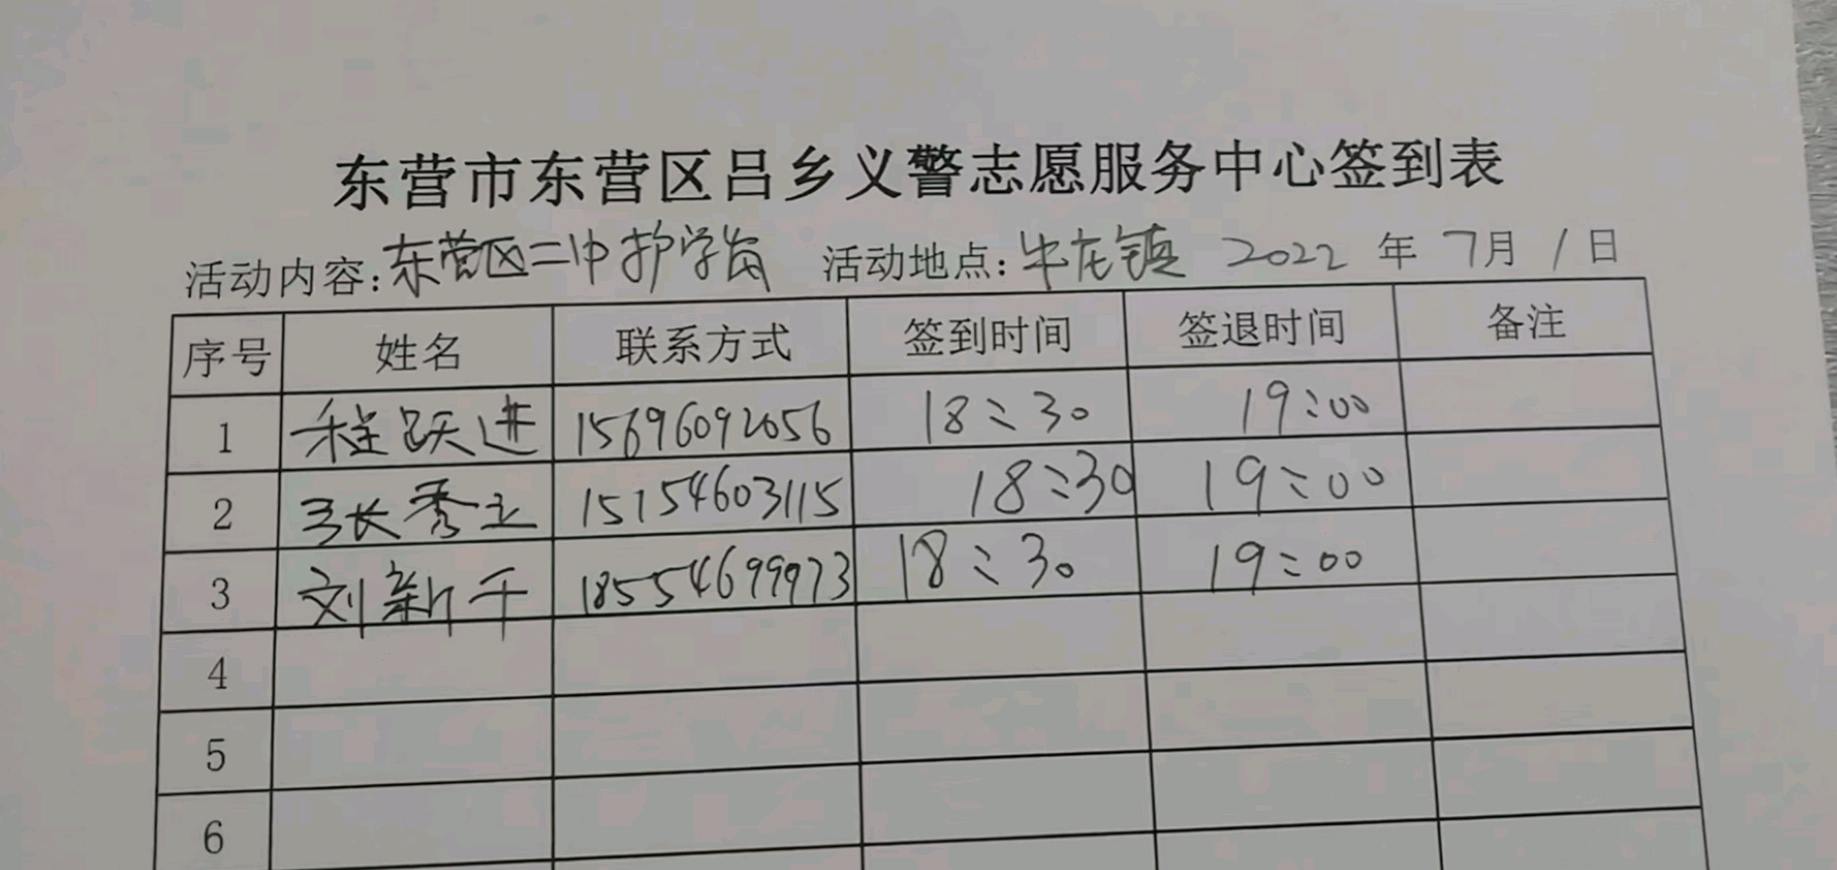 东营市东营区吕乡义警志愿服务中心签到表
活动内容:东营区二中护学岗 活动地点:牛庄镇 2022 年 7月 1 日
序号 姓名 联系方式 签到时间 签退时间 备注
1 程跃进 15696092056 18:30 19:00
2 张秀立 15154603115 18:30 19:00
3 刘新千 18554699973 18:30 19:00
4
5
6